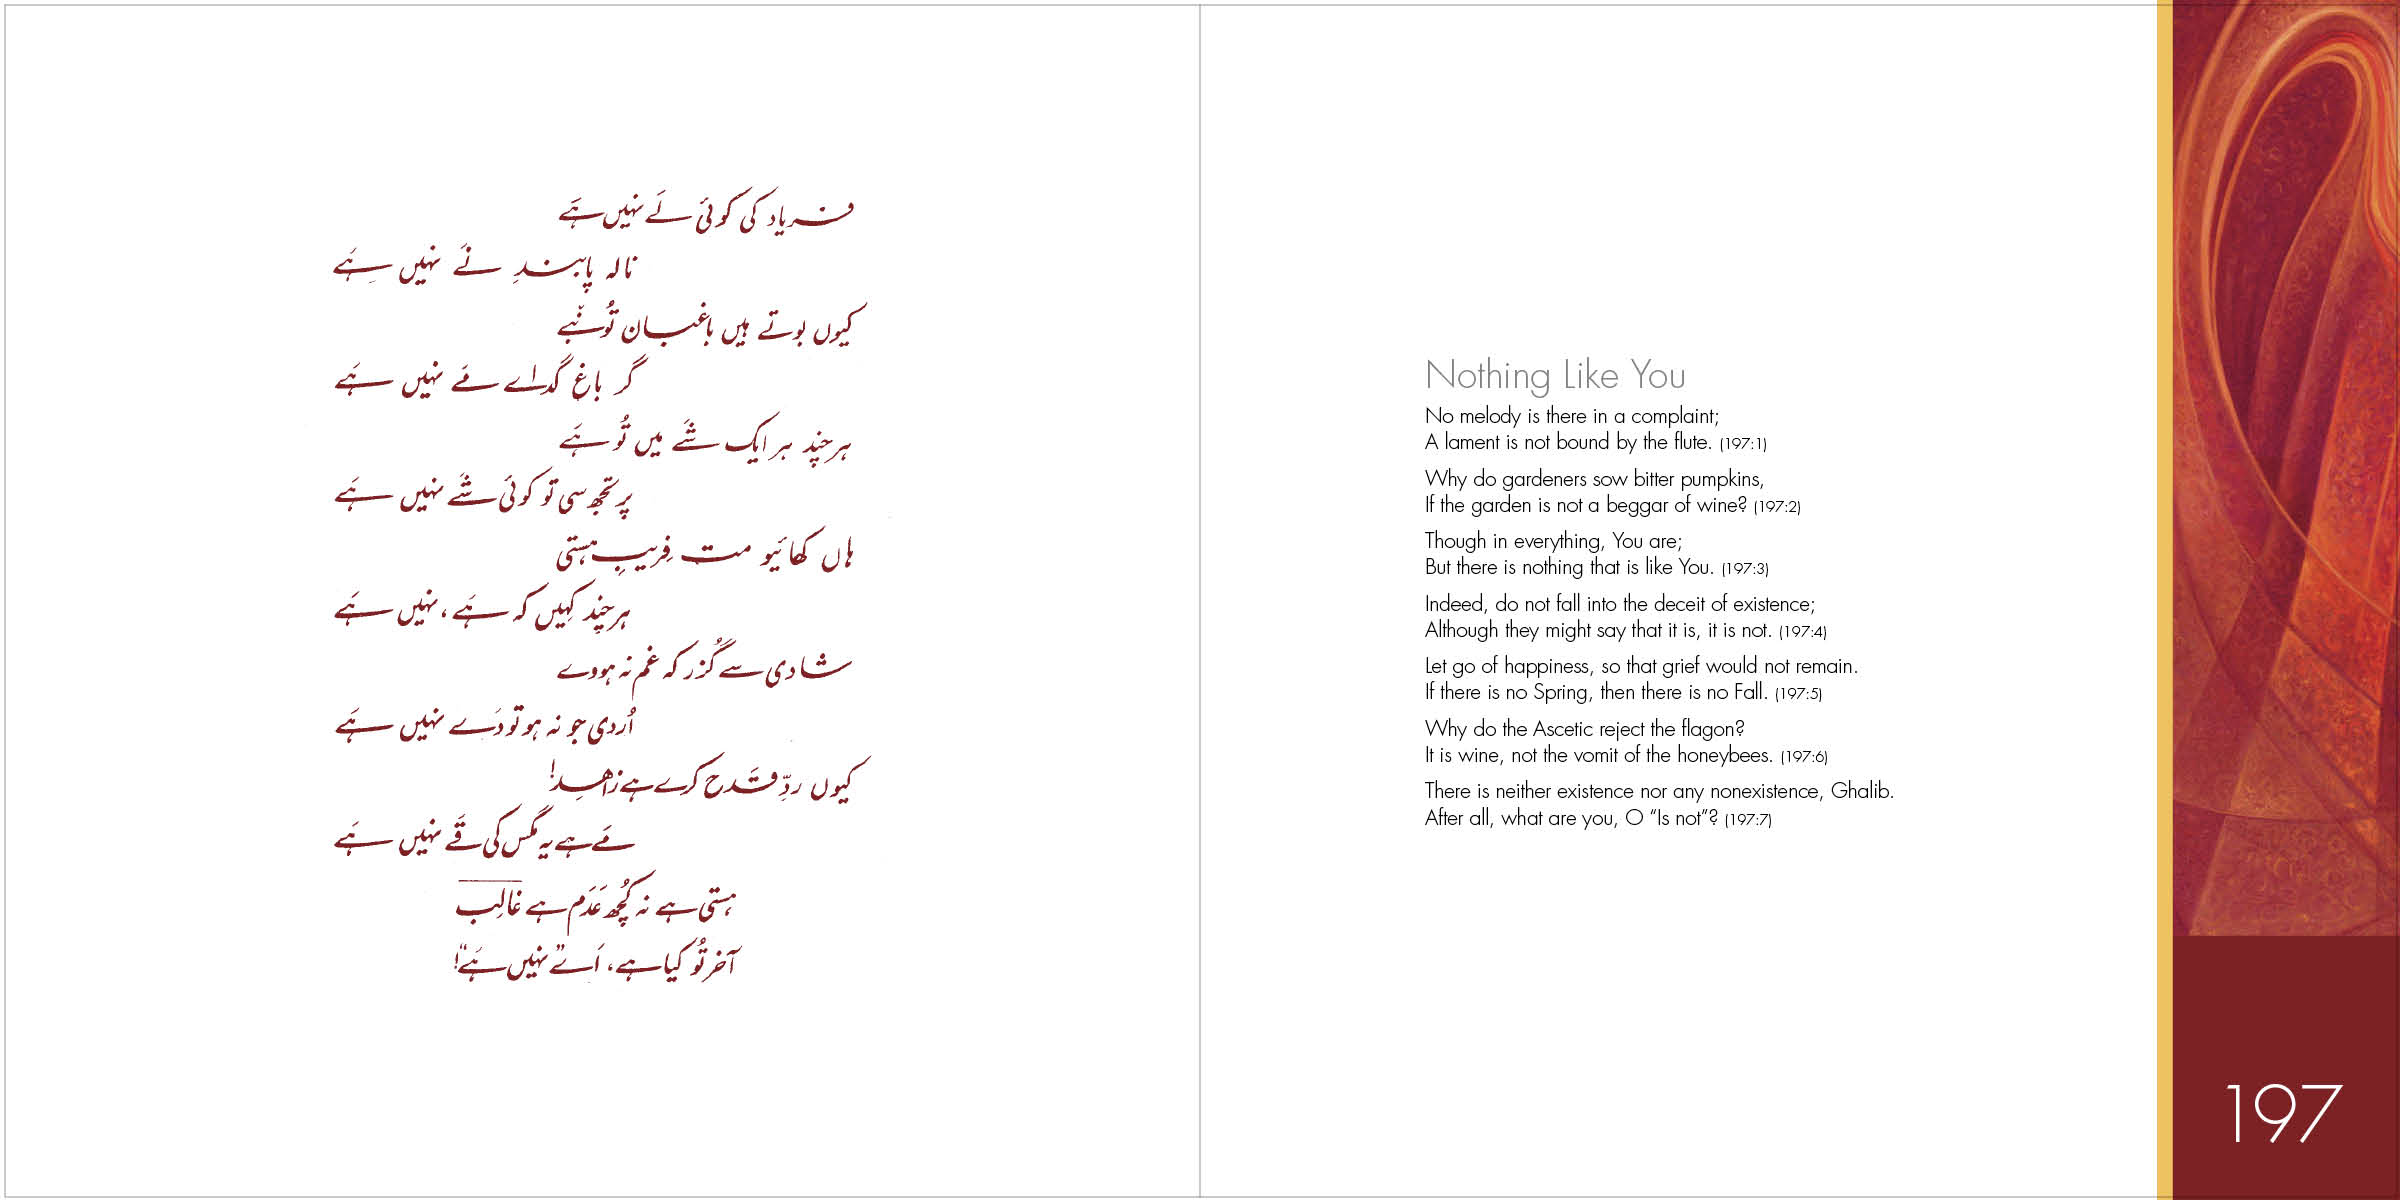 فریاد کی کوئی لَے نہیں ہَے
نالہ پابندِ نَے نہیں ہَے
کیوں بوتے ہیں باغبان تُونبّے
گر باغ گدا ے مَے نہیں ہَے
ہر چند ہر ایک شَے میں تُو ہَے
پر تجھ سی تو کوئی شَے نہیں ہَے
ہاں کھائیو مت فریبِ ہستی
ہر چند کہیں کہ ہَے، نہیں ہَے
شادی سے گُزر کہ غم نہ ہووے
اُردی جو نہ ہو تو دَے نہیں ہَے
کیوں ردِّ قدح کرے ہے زاہد!
مَے ہے یہ مگس کی قَے نہیں ہَے
ہستی ہے نہ کُچھ عَدَم ہے غالِب
آخر تُو کیا ہے، اَے ”نہیں ہَے“!
Nothing Like You
No melody is there in a complaint;
A lament is not bound by the flute. (197:1)
Why do gardeners sow bitter pumpkins,
If the garden is not a beggar of wine? (197:2)
Though in everything, You are;
But there is nothing that is like You. (197:3)
Indeed, do not fall into the deceit of existence;
Although they might say that it is, it is not. (197:4)
Let go of happiness, so that grief would not remain.
If there is no Spring, then there is no Fall. (197:5)
Why do the Ascetic reject the flagon?
It is wine, not the vomit of the honeybees. (197:6)
There is neither existence nor any nonexistence, Ghalib.
After all, what are you, O “Is not”? (197:7)
197